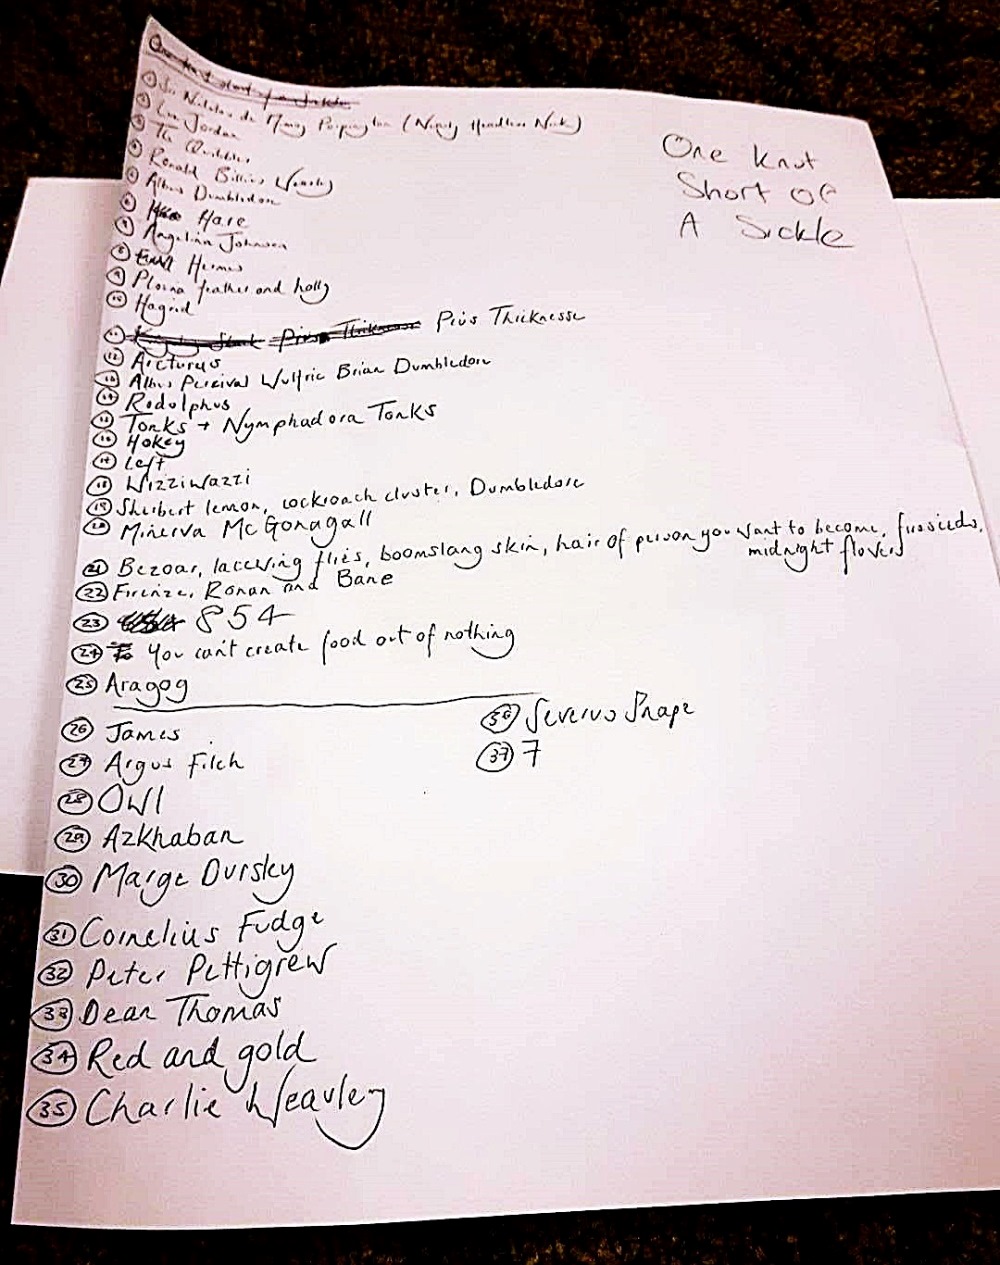 One knut short of a sickle
One Knut
Short Of
A Sickle
① Sir Nicholas de Mimsy Porpington (Nearly Headless Nick)
② Lee Jordan
③ The Quibbler
④ Ronald Billius Weasley
⑤ Albus Dumbledore
⑥ Hare
⑦ Angelina Johnson
⑧ Hermes
⑨ Phoenix feather and holly
⑩ Hagrid
⑪ Pius Thicknesse Pius Thicknesse
⑫ Arcturus
⑬ Albus Percival Wulfric Brian Dumbledore
⑭ Rodolphus
⑮ Tonks + Nymphadora Tonks
⑯ Hokey
⑰ Left
⑱ Wizziwazzi
⑲ Sherbert lemon, cockroach cluster, Dumbledore
⑳ Minerva McGonagall
㉑ Bezoar, lacewing flies, boomslang skin, hair of person you want to become,
midnight flovers
㉒ Firenze, Ronan and Bane
㉓ 854
㉔ You can't create food out of nothing
㉕ Aragog
㉖ James
㉗ Argus Filch
㉘ Owl
㉙ Azkhaban
㉚ Marge Dursley
㉛ Cornelius Fudge
㉜ Peter Pettigrew
㉝ Dean Thomas
㉞ Red and gold
㉟ Charlie Weasley
㊱ Severus Snape
㊲ 7